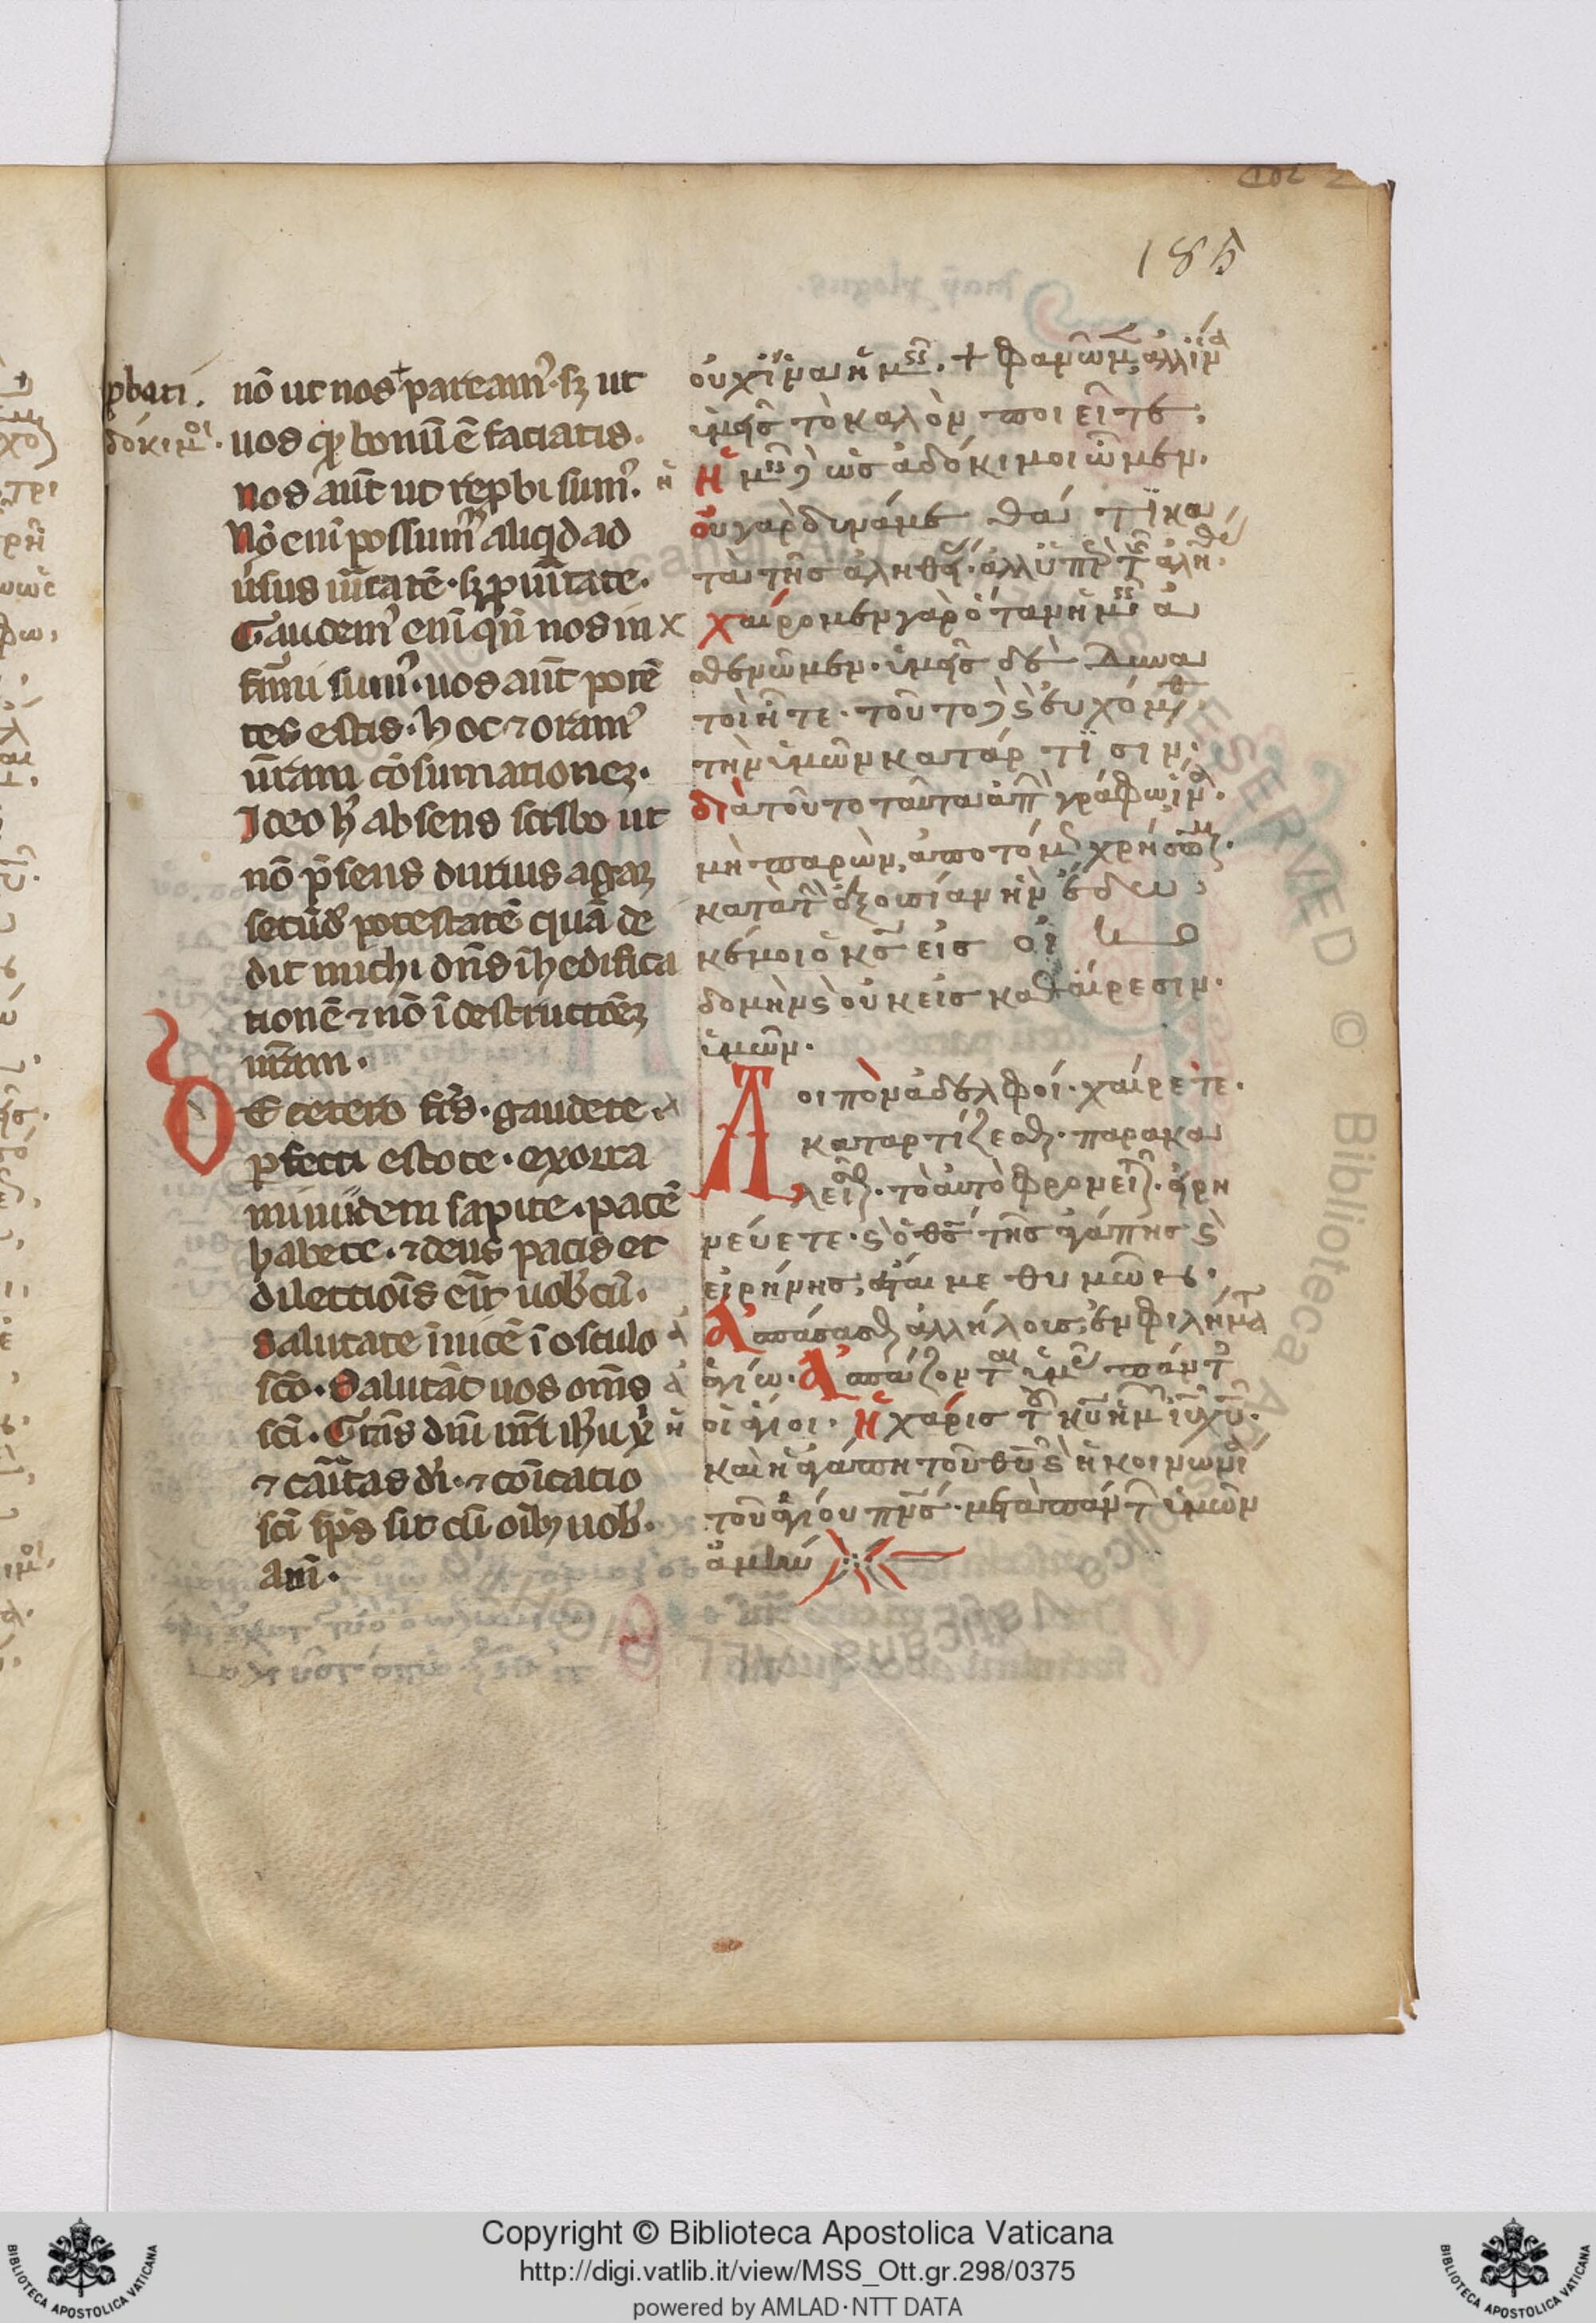 185
p̱bati.
δόκιμοι.
nō ut nos + pateam᷒. sꝫ ut
uos qd bonū ē faciatis.
nos aūt ut rep̱bi sum᷒.
Nō eni possum᷒ aliqd ad
ūsus ūitatē. sꝫ p̱ ūitate.
Gaudem᷒ eni qn̄ nos in
firmi sum᷒. uos aūt potē
tes estis. hoc ⁊ oram᷒
ūram cōsumationeꝫ.
Ideo h᷒ absens scribo ut
nō p̄sens durius agaꝫ
secūd᷒ potestatē quā de
dit michi dn̄s ī hedifica
tionē ⁊ nō ī destructōeꝫ
ur̄am.
De cetero fr̄s. gaudete.
ꝑfecti estote. exorta
mini idem sapite. pacē
habete. ⁊ deus pacis et
dilectiōis er̄it uob᷒cū.
Salutate īuicē ī osculo
sc̄o. Salutāt uos om̄s
sc̄i. Gr̄a dn̄i nr̄i ih᷒u xp̄i
⁊ cār̄itas dī. ⁊ cōicatio
sc̄i sp̄s sit cū oīb᷒ uob᷒.
am̄.
οὐχ ἵνα ἡμεῖς + φανῶμεν, ἀλλ ἵνα
ὑμεῖς τὸ καλὸν ποιεῖτε,
ἡμεῖς δὲ ὡς ἀδόκιμοι ὦμεν.
οὐ γὰρ δυνάμεθά τι κα
τὰ τῆς ἀληθείας. ἀλλ ὑπὲρ τῆς ἀληθείας.
χαίρομεν γὰρ ὅταν ἡμεῖς ἀ
σθενῶμεν. ὑμεῖς δὲ δυνα
τοὶ ἦτε. τοῦτο δὲ ϗ εὐχόμεθα
τὴν ὑμῶν κατάρτισιν.
διὰ τοῦτο ταῦτα ἀπὼν γράφω ἵνα
μὴ παρὼν, ἀποτόμως χρήσωμαι.
κατὰ τὴν ἐξουσίαν ἣν ἔδω
κέ μοι ὁ κς̄ εἰς οἰκο
δομὴν ϗ οὐκ εἰς καθαίρεσιν.
ὑμῶν.
Λοιπὸν ἀδελφοί. χαίρετε.
καταρτίζεσθε. παρακα
λεῖσθε. τὸ αὐτὸ φρονεῖτε. εἰρη
νεύετε. ϗ ὁ θς̄ τῆς ἀγάπης ϗ
εἰρήνης, ἔσται μεθ υμῶν.
Ἀσπάσασθε ἀλλήλους, ἐν φιλήματι
ἁγίω. Ἀσπάζονται ὑμᾶς πάντες
οἱ ἅγιοι. Ἡ χάρις τοῦ κῡ ἡμῶν ιῡ χῡ.
καὶ ἡ ἀγάπη τοῦ θῡ ϗ ἡ κοινωνία
τοῦ ἁγίου πνς̄. μετὰ πάντων ὑμῶν
ἀμήν
Copyright © Biblioteca Apostolica Vaticana
http://digi.vatlib.it/view/MSS_Ott.gr.298/0375
powered by AMLAD·NTT DATA
BIBLIOTECA APOSTOLICA VATICANA
BIBLIOTECA APOSTOLICA VATICANA